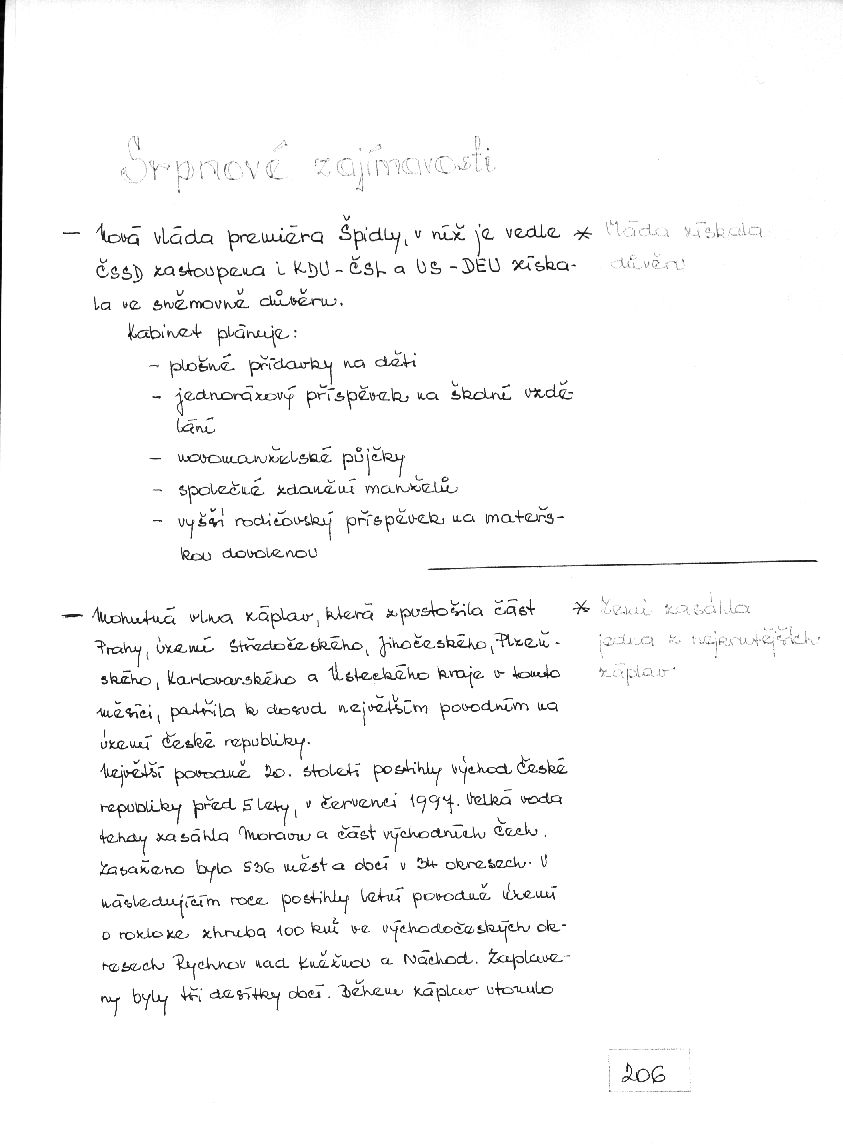 Srpnové zajímavosti
— Nová vláda premiéra Špidly, v níž je vedle * Vláda získala
ČSSD zastoupena i KDU-ČSL a US-DEU získa- důvěru
la ve sněmovně důvěru.
Kabinet plánuje:
– plošné přídavky na děti
– jednorázový příspěvek na školní vzdě-
lání
– novomanželské půjčky
– společné zdanění manželů
– vyšší rodičovský příspěvek na mateřs-
kou dovolenou
— Mohutná vlna záplav, která zpustošila část * Zemi zasáhla
Prahy, území Středočeského, Jihočeského, Plzeň- jedna z nejkrutějších
ského, Karlovarského a Ústeckého kraje v tomto záplav
měsíci, patřila k dosud největším povodním na
území České republiky.
Největší povodně 20. století postihly východ České
republiky před 5 lety, v červenci 1997. Velká voda
tehdy zasáhla Moravu a část východních Čech.
Zasaženo bylo 536 měst a obcí v 34 okresech. V
následujícím roce postihly letní povodně území
o rozloze zhruba 100 km² ve východočeských ok-
resech Rychnov nad Kněžnou a Náchod. Zaplave-
ny byly tři desítky obcí. Během záplav utonulo
206